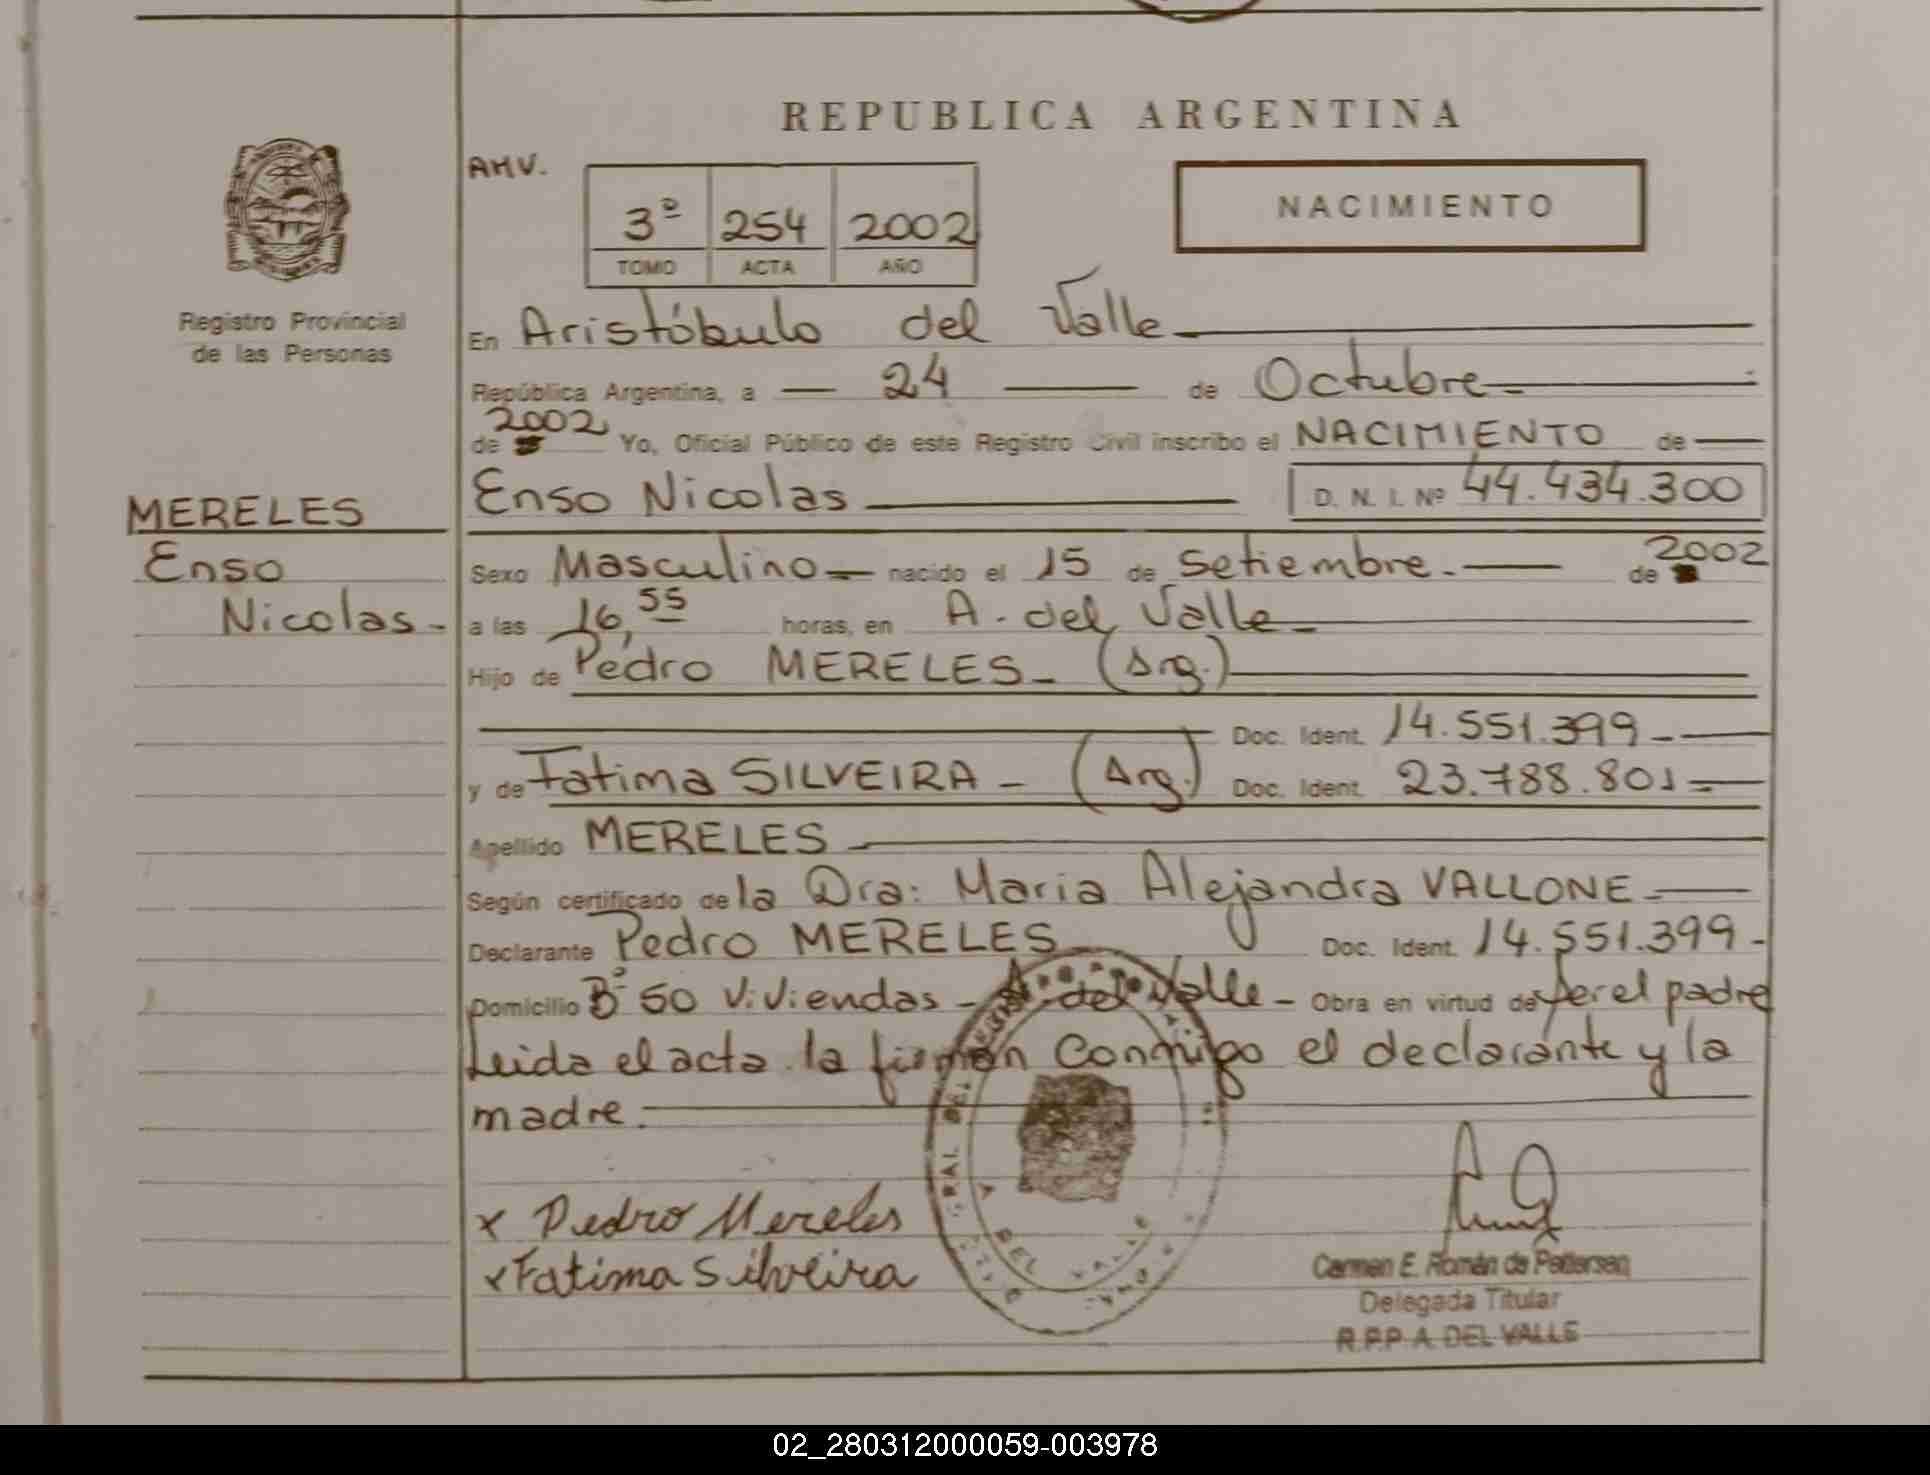 REPUBLICA ARGENTINA
AMV.
3º 254 2002
TOMO ACTA AÑO
NACIMIENTO
Registro Provincial
de las Personas
MERELES
Enso
Nicolas -
En Aristóbulo del Valle
República Argentina, a 24 de Octubre
de 2002 Yo, Oficial Público de este Registro Civil inscribo el NACIMIENTO de
Enso Nicolas D. N. I. Nº 44.434.300
Sexo Masculino nacido el 15 de Setiembre. de 2002
a las 16,55 horas, en A. del Valle
Hijo de Pedro MERELES - (Arg.)
Doc. Ident. 14.551.399 -
y de Fatima SILVEIRA - (Arg.) Doc. Ident. 23.788.801
Apellido MERELES
Según certificado de la Dra: Maria Alejandra VALLONE
Declarante Pedro MERELES Doc. Ident. 14.551.399 -
Domicilio Bº 50 Viviendas - A. del Valle - Obra en virtud de ser el padre
Leida el acta la firman conmigo el declarante y la
madre.
x Pedro Mereles
x Fatima Silveira
DEL VALLE
Carmen E. Román de Pettersen
Delegada Titular
R.P.P. A. DEL VALLE
02_280312000059-003978